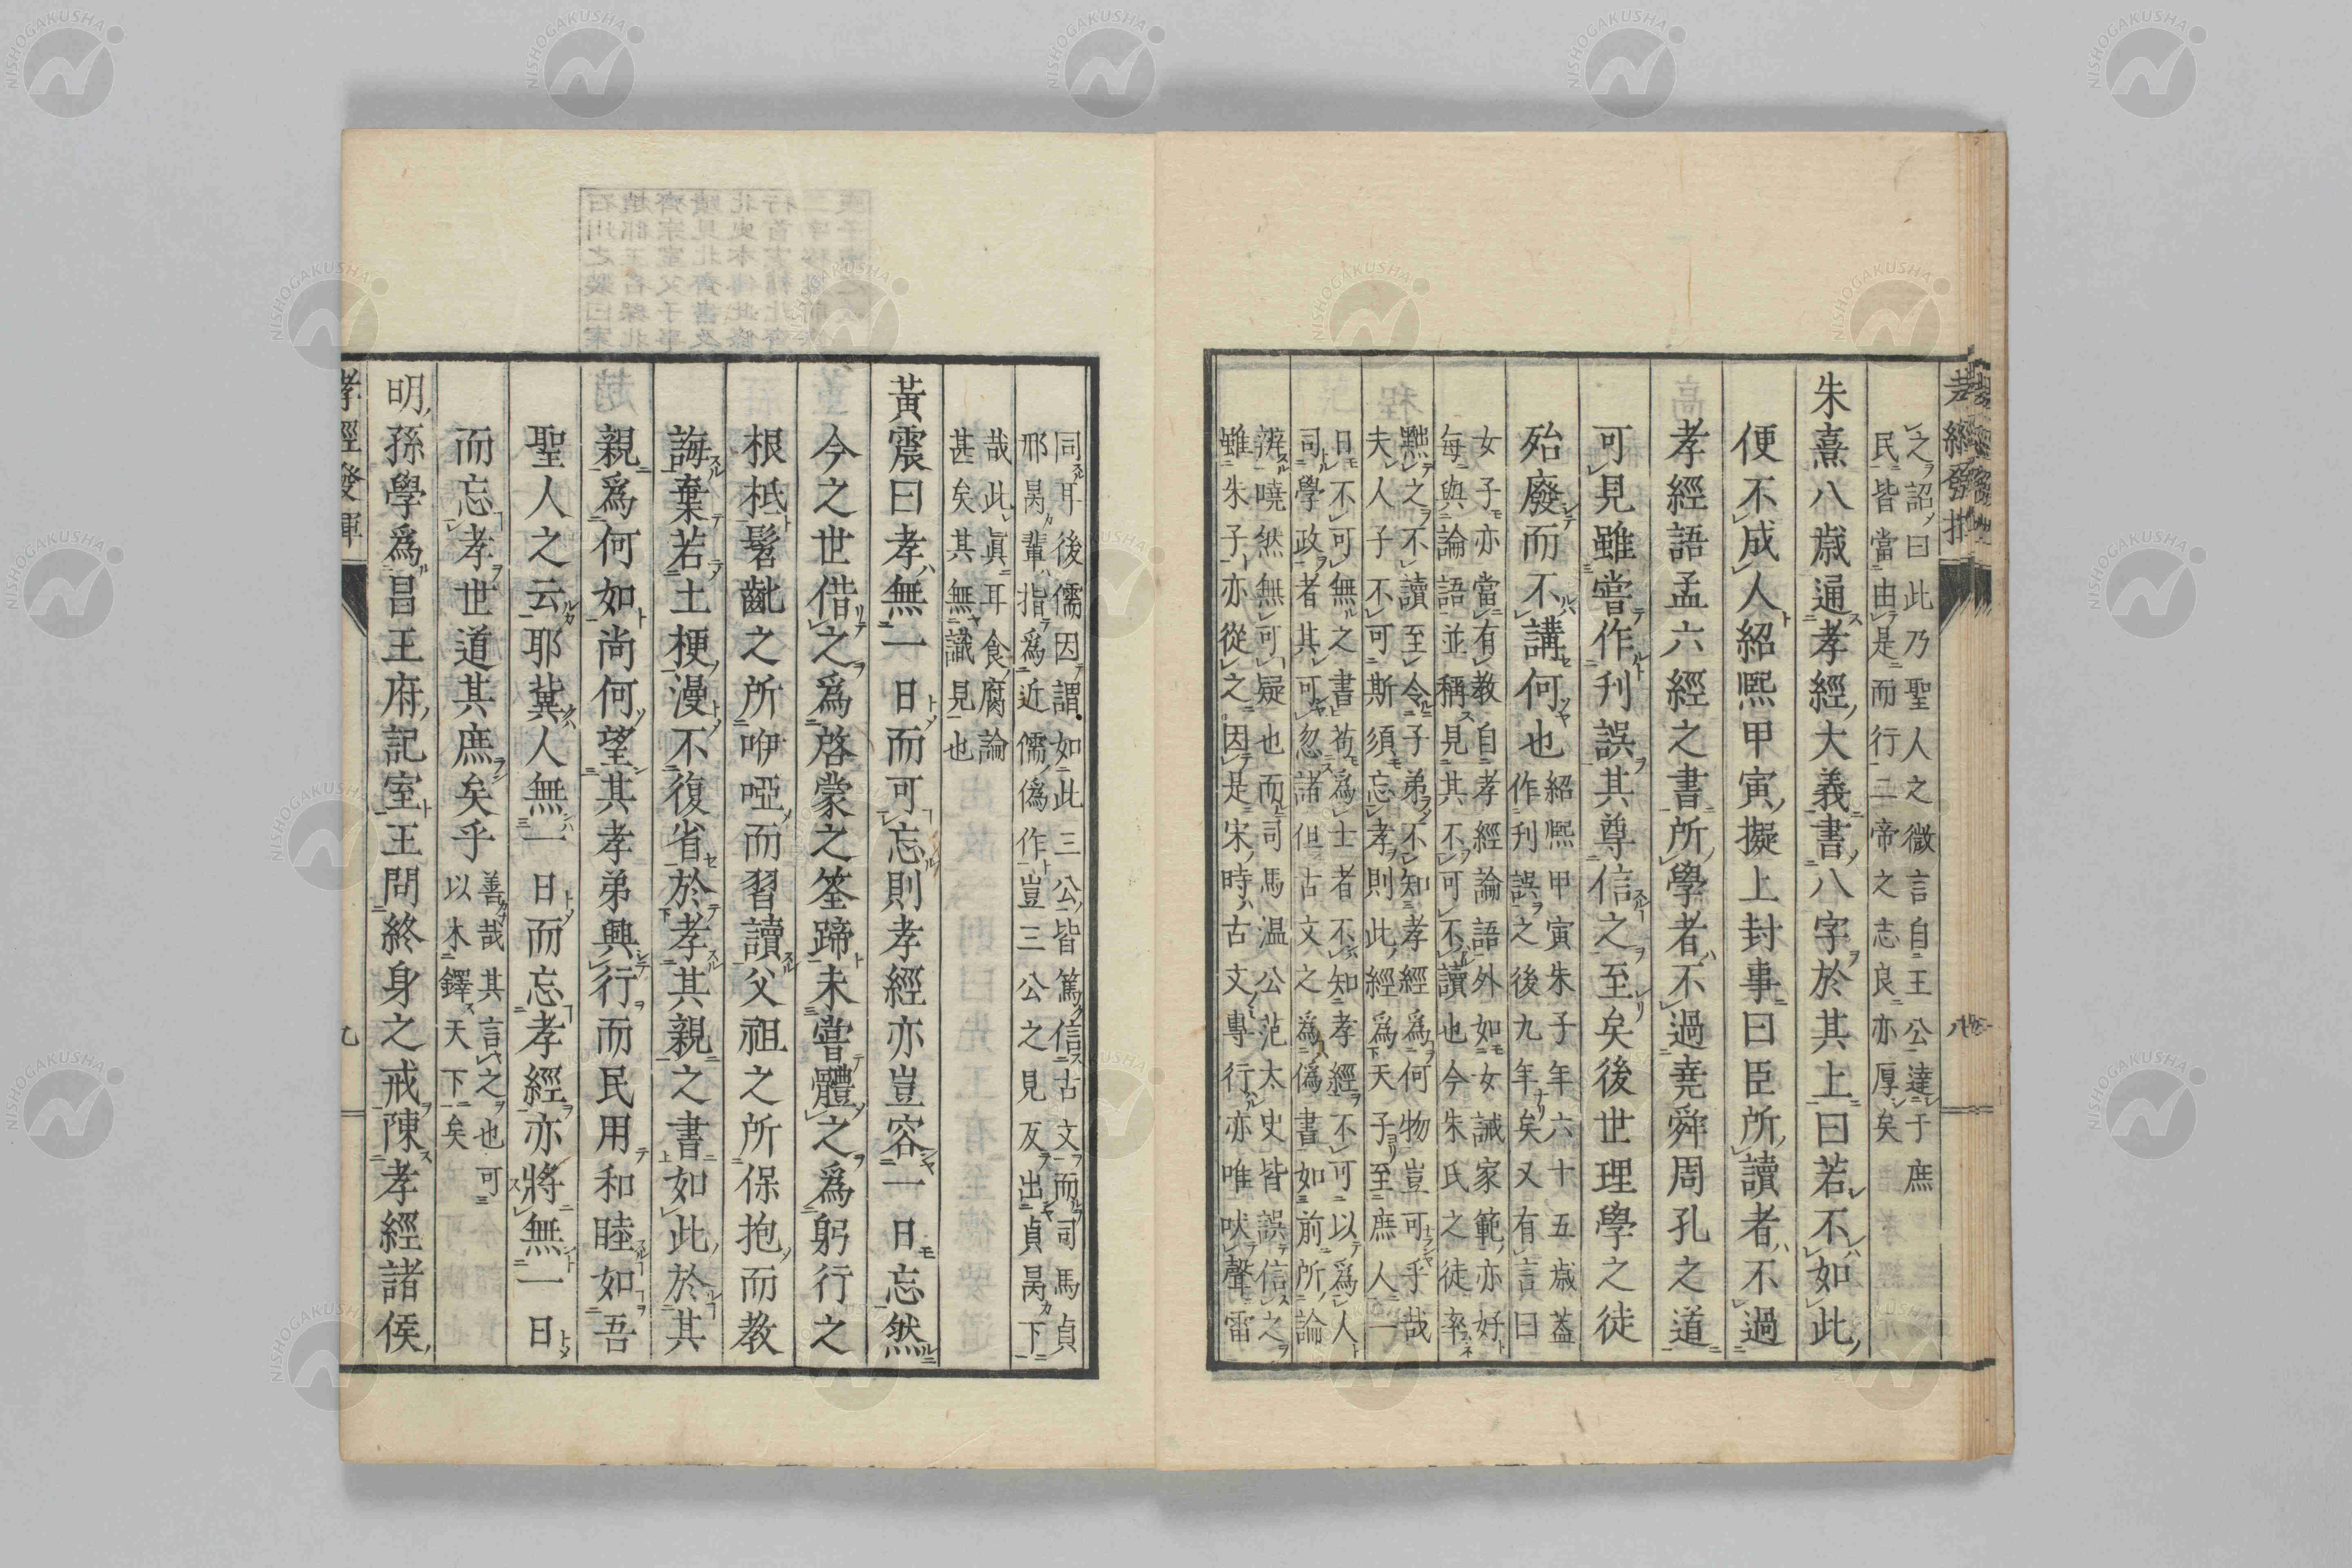 之詔曰此乃聖人之微言自王公達于庶
民皆當由是而行二帝之志良亦厚矣
朱熹八歲通孝經大義書八字於其上曰若不如此
便不成人紹熙甲寅擬上封事曰臣所讀者不過
孝經語孟六經之書所學者不過堯舜周孔之道
可見雖嘗作刊誤其尊信之至矣後世理學之徒
殆廢而不講何也
紹熙甲寅朱子年六十五歲蓋
作刊誤之後九年矣又有言曰
女子亦當有教自孝經論語外如女誡家範亦好
每與論語並稱見其不可不讀也今朱氏之徒率
黜之不讀至令子弟不知孝經爲何物豈可乎哉
夫人子不可斯須忘孝則此經爲天子至庶人一
日不可無之書苟爲士者不知孝經不可以爲人
司學政者其可忽諸但古文之為偽書如前所論
辨曉然無可疑也而司馬温公范太史皆誤信之
雖朱子亦從之因是宋時古文專行亦唯吠聲雷
同耳後儒因謂如此三公皆篤信古文而司馬貞
邢昺輩指爲近儒僞作豈三公之見反出貞昺下
哉此眞耳食腐論
甚矣其無識見也
黃震曰孝無一日而可忘則孝經亦豈容一日忘然
今之世借之爲啓蒙之筌蹄未嘗體之爲躬行之
根柢髫齔之所咿啞而習讀父祖之所保抱而教
誨棄若土梗漫不復省於孝其親之書如此於其
親爲何如尚何望其孝弟興行而民用和睦如吾
聖人之云耶冀人無一日而忘孝經亦將無一日
而忘孝世道其庶矣乎
善哉其言之也可
以木鐸天下矣
明孫學爲昌王府記室王問終身之戒陳孝經諸侯
孝經發揮
八
孝經發揮
九